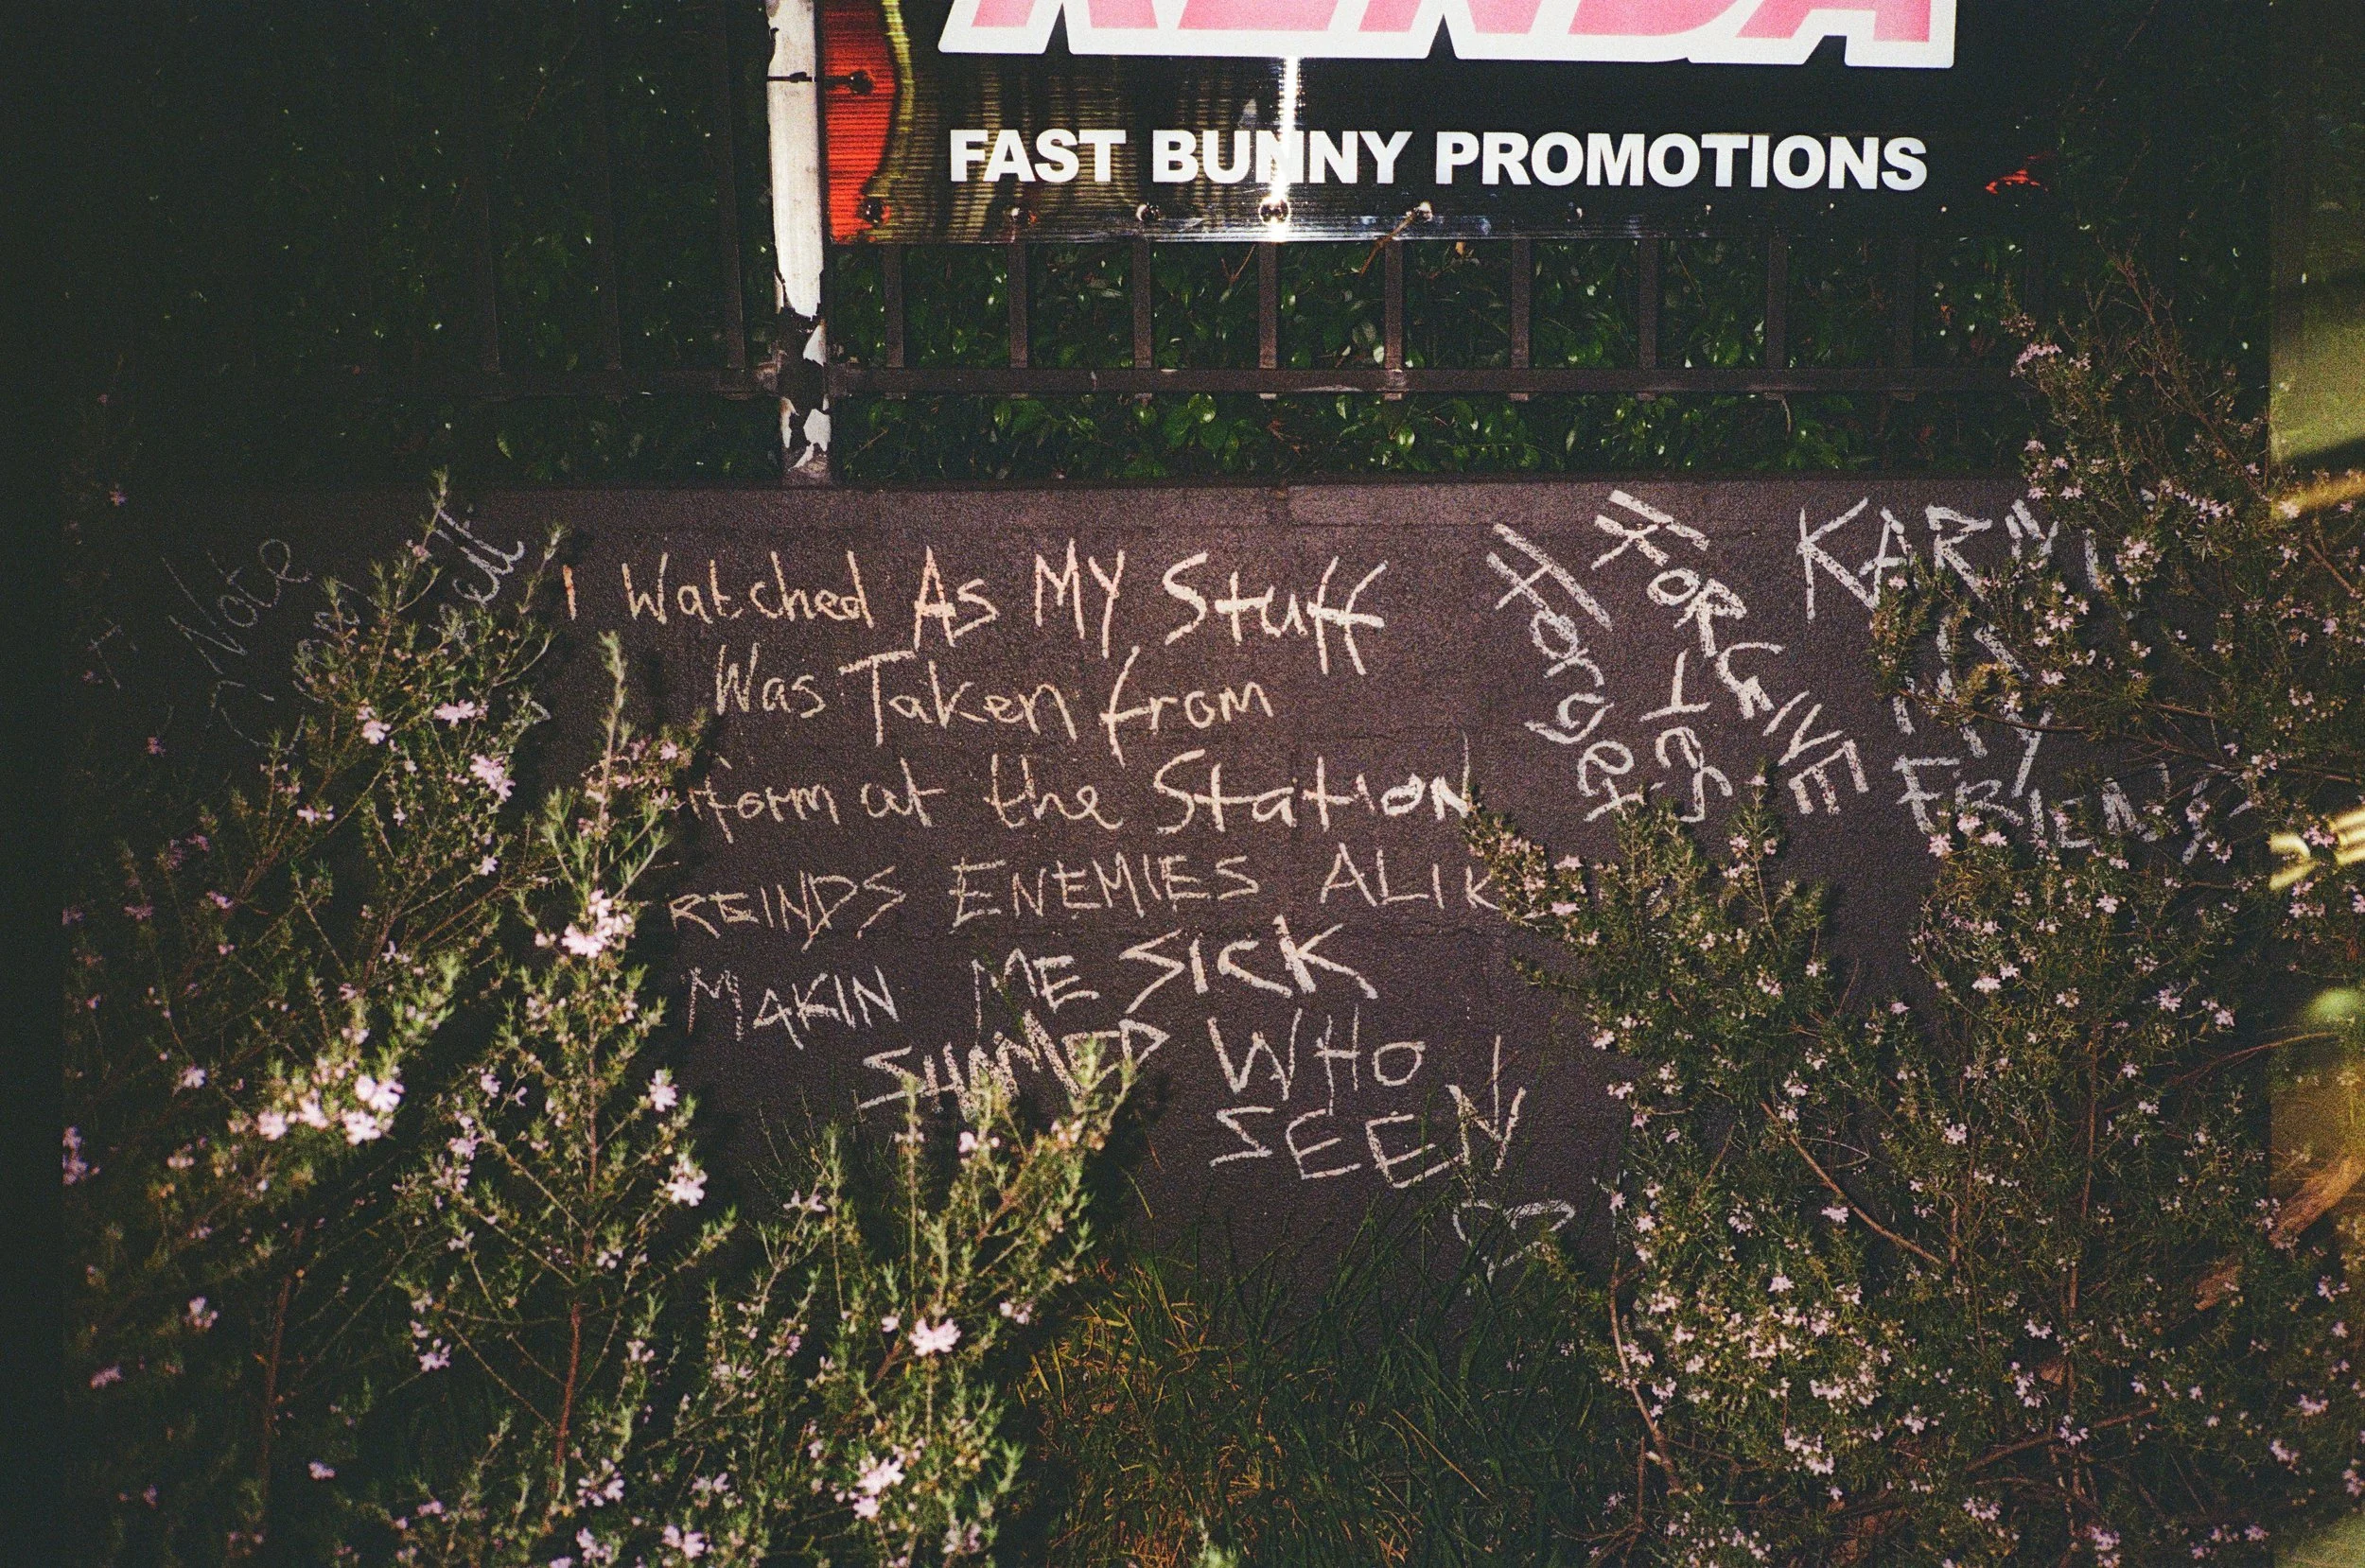 FAST BUNNY PROMOTIONS
Note
I Watched As My Stuff
Was Taken from
form at the Station
REINDS ENEMIES ALIK
MAKIN ME SICK
SHAMED WHO
SEEN
Forget
Yes
FORGIVE
KARMA
MY
FRIENDS